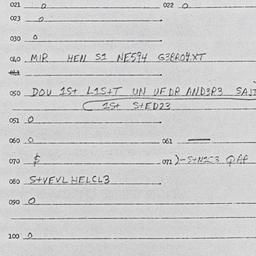 021 0 022 0
023 0
030 0
040 MIR HEN S1 NE594
041
050 DOU 1S+ L1S+T UN UFDR AND3R3
1S+ S+ED23
051 0
060 0 061 —
070 $ 071
080 S+VEVL HELCL3
090 0
100 0